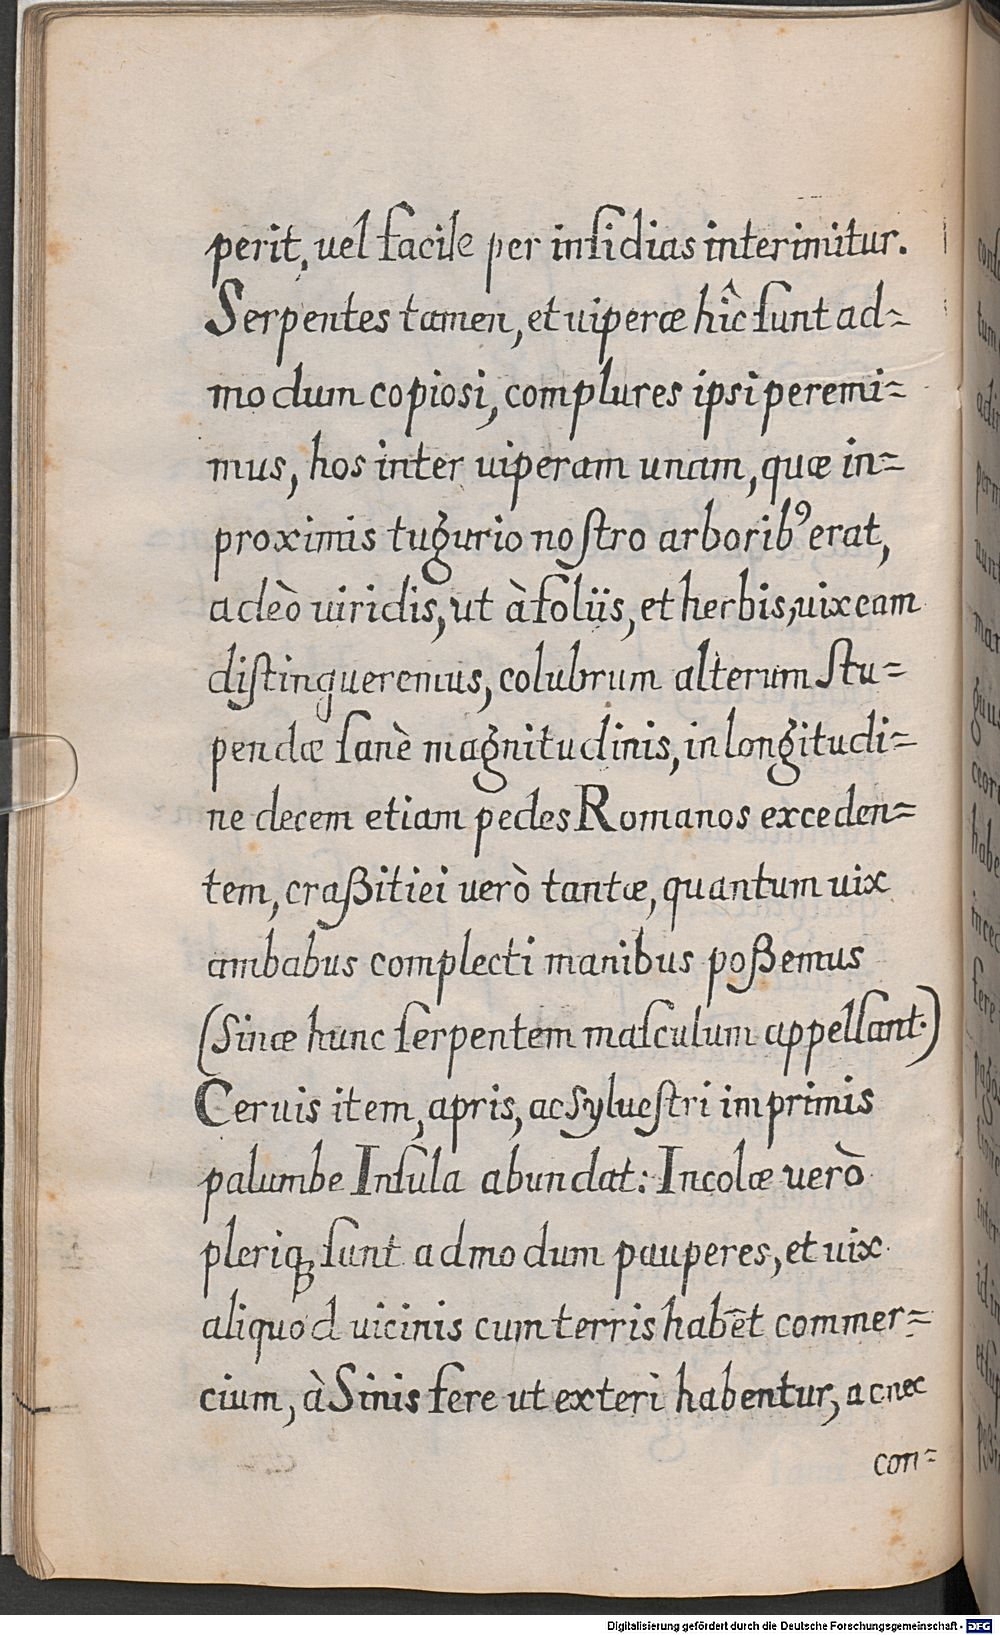 perit, uel facile per insidias interimitur.
Serpentes tamen, et uiperæ hîc sunt ad=
modum copiosi, complures ipsi peremi=
mus, hos inter uiperam unam, quæ in=
proximis tugurio nostro arborib⁹ erat,
adeò uiridis, ut à foliis, et herbis, uix eam
distingueremus, colubrum alterum stu=
pendæ sanè magnitudinis, in longitudi=
ne decem etiam pedes Romanos exceden=
tem, craßitiei uerò tantæ, quantum uix
ambabus complecti manibus poßemus
(Sinæ hunc serpentem masculum appellant.)
Ceruis item, apris, ac syluestri imprimis
palumbe Insula abundat: Incolæ uerò
pleriq; sunt admodum pauperes, et uix
aliquod uicinis cum terris habēt commer=
cium, à Sinis fere ut exteri habentur, ac nec
con=
Digitalisierung gefördert durch die Deutsche Forschungsgemeinschaft - DFG